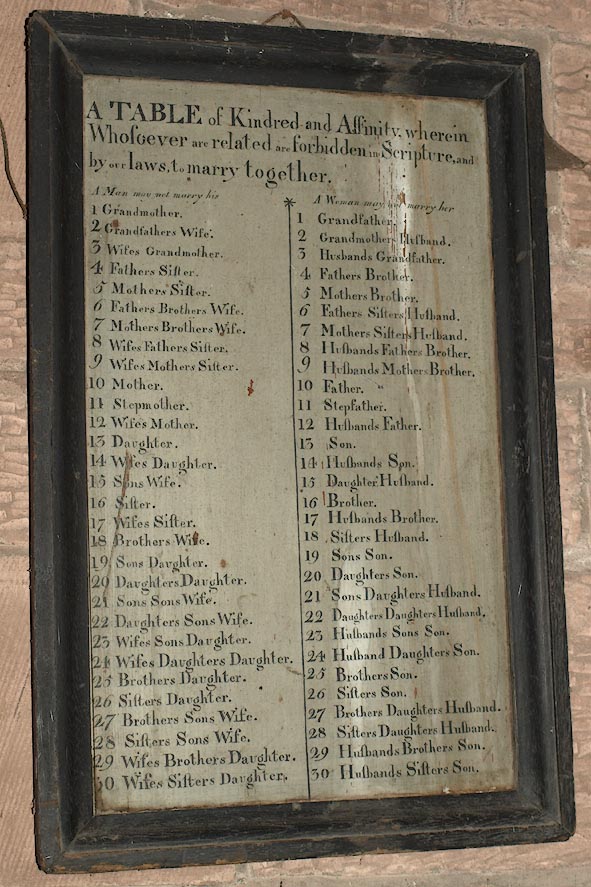 A TABLE of Kindred and Affinity, wherein
Whoſoever are related are forbidden in Scripture, and
by our laws, to marry together.
A Man may not marry his
1 Grandmother.
2 Grandfathers Wife.
3 Wifes Grandmother.
4 Fathers Siſter.
5 Mothers Siſter.
6 Fathers Brothers Wife.
7 Mothers Brothers Wife.
8 Wifes Fathers Siſter.
9 Wifes Mothers Siſter.
10 Mother.
11 Stepmother.
12 Wifes Mother.
13 Daughter.
14 Wifes Daughter.
15 Sons Wife.
16 Siſter.
17 Wifes Siſter.
18 Brothers Wife.
19 Sons Daughter.
20 Daughters Daughter.
21 Sons Sons Wife.
22 Daughters Sons Wife.
23 Wifes Sons Daughter.
24 Wifes Daughters Daughter.
25 Brothers Daughter.
26 Siſters Daughter.
27 Brothers Sons Wife.
28 Siſters Sons Wife.
29 Wifes Brothers Daughter.
30 Wifes Siſters Daughter.
A Woman may not marry her
1 Grandfather.
2 Grandmothers Huſband.
3 Husbands Grandfather.
4 Fathers Brother.
5 Mothers Brother.
6 Fathers Siſters Huſband.
7 Mothers Siſters Huſband.
8 Huſbands Fathers Brother.
9 Huſbands Mothers Brother.
10 Father.
11 Stepfather.
12 Huſbands Father.
13 Son.
14 Huſbands Son.
15 Daughter Huſband.
16 Brother.
17 Huſbands Brother.
18 Siſters Huſband.
19 Sons Son.
20 Daughters Son.
21 Sons Daughters Huſband.
22 Daughters Daughters Huſband.
23 Huſbands Sons Son.
24 Huſband Daughters Son.
25 Brothers Son.
26 Siſters Son.
27 Brothers Daughters Huſband.
28 Siſters Daughters Huſband.
29 Huſbands Brothers Son.
30 Huſbands Siſters Son.